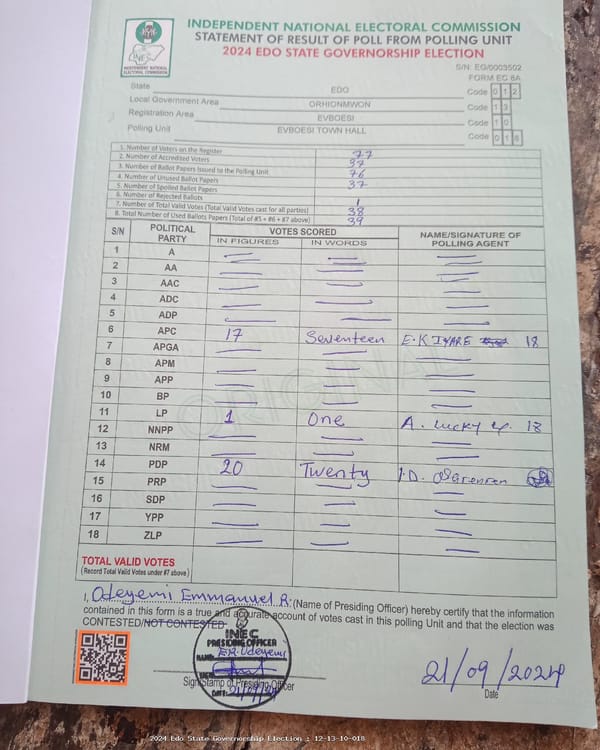 INDEPENDENT NATIONAL ELECTORAL COMMISSION
STATEMENT OF RESULT OF POLL FROM POLLING UNIT
2024 EDO STATE GOVERNORSHIP ELECTION
INEC
INDEPENDENT NATIONAL
ELECTORAL COMMISSION
S/N: EG/0003502
FORM EC 8A
State EDO Code 0 1 2
Local Government Area ORHIONMWON Code 1 3
Registration Area EVBOESI Code 1 0
Polling Unit EVBOESI TOWN HALL Code 0 1 8
1. Number of Voters on the Register 77
2. Number of Accredited Voters 37
3. Number of Ballot Papers Issued to the Polling Unit 76
4. Number of Unused Ballot Papers 37
5. Number of Spoiled Ballot Papers
6. Number of Rejected Ballots 1
7. Number of Total Valid Votes (Total Valid Votes cast for all parties) 38
8. Total Number of Used Ballots Papers (Total of #5 + #6 + #7 above) 39
S/N POLITICAL PARTY VOTES SCORED NAME/SIGNATURE OF POLLING AGENT
IN FIGURES IN WORDS
1 A
2 AA
3 AAC
4 ADC
5 ADP
6 APC 17 Seventeen E.K IYARE 18
7 APGA
8 APM
9 APP
10 BP
11 LP 1 One A. Lucky 18
12 NNPP
13 NRM
14 PDP 20 Twenty I.D. Osarenren
15 PRP
16 SDP
17 YPP
18 ZLP
ORIGINAL
TOTAL VALID VOTES
(Record Total Valid Votes under #7 above)
I, Odeyemi Emmanuel R. (Name of Presiding Officer) hereby certify that the information
contained in this form is a true and accurate account of votes cast in this polling Unit and that the election was
CONTESTED/NOT CONTESTED
INEC
PRESIDING OFFICER
NAME: E.R. Odeyemi
SIGN:
DATE: 21/09/24
Sign/Stamp of Presiding Officer
21/09/2024
Date
2024 Edo State Governorship Election : 12-13-10-018